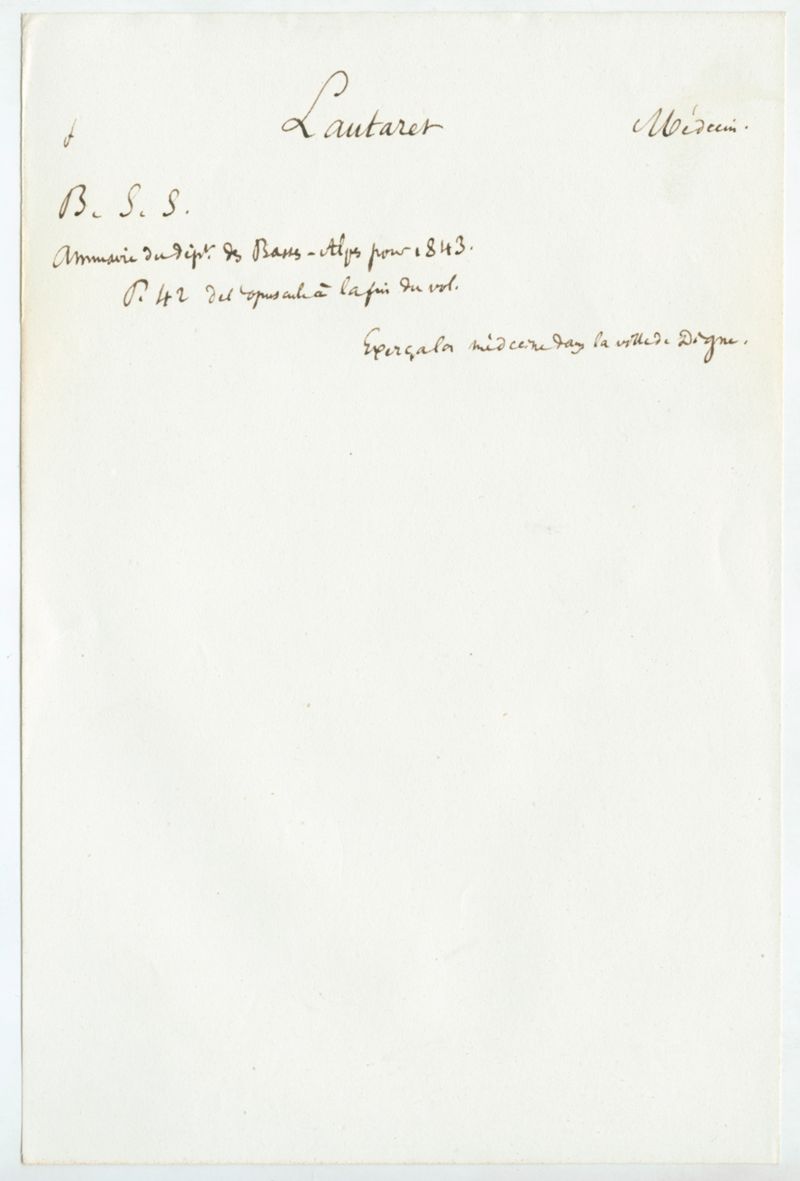 Lautaret Médecin.
B. S. S.
Annuaire du dépt. des Basses-Alpes pour 1843.
P. 42 de l'opuscule à la fin du vol.
Exerça la médecine dans la ville de Digne.